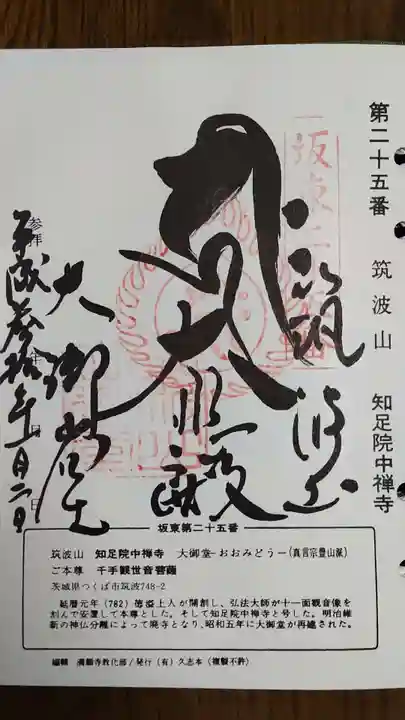 第二十五番 筑波山 知足院中禅寺
坂東二
筑波山
大悲殿
大御堂
参拝
平成参拾年一月二日
坂東第二十五番
筑波山 知足院中禅寺 大御堂-おおみどう-(真言宗豊山派)
ご本尊 千手観世音菩薩
茨城県つくば市筑波748-2
延暦元年(782)徳溢上人が開創し、弘法大師が十一面観音像を
刻んで安置して本尊とした。そして知足院中禅寺と号した。明治維
新の神仏分離によって廃寺となり、昭和五年に大御堂が再建された。
編輯 満願寺教化部/発行(有)久志本(複製不許)